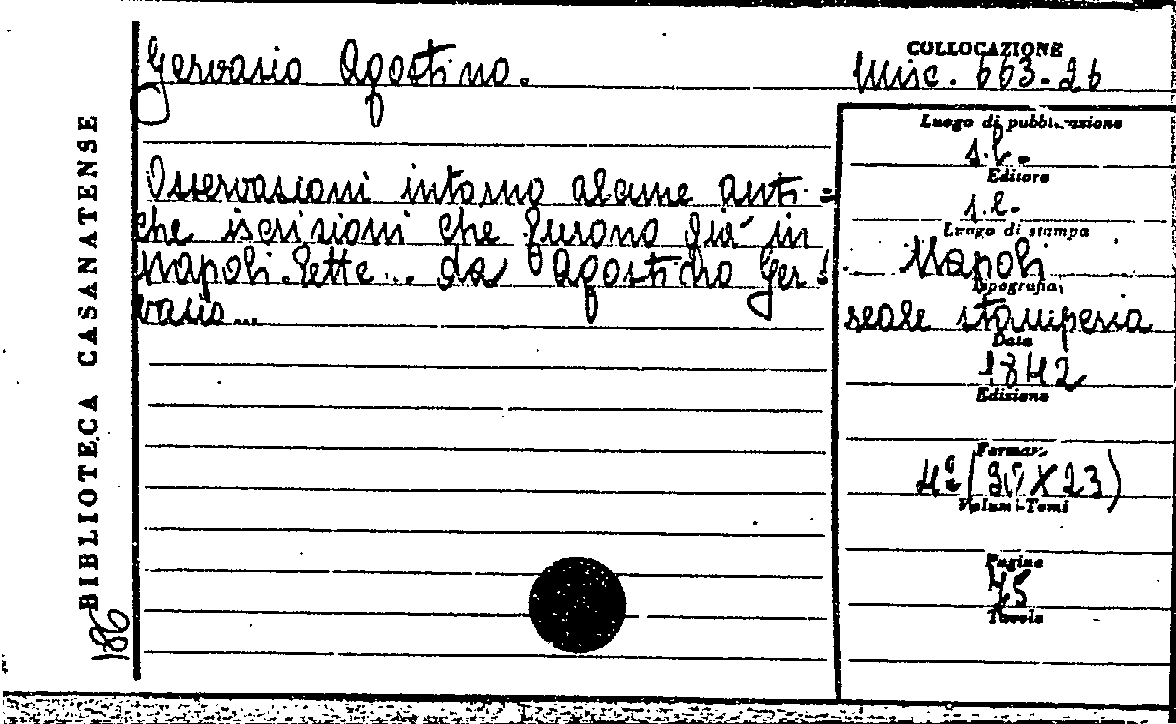 Gervasio Agostino.
COLLOCAZIONE
Misc. 663-26
Osservazioni intorno alcune anti=
che iscrizioni che furono già in
Napoli. Lette... da Agostino Ger=
vasio...
Luogo di pubblicazione
s.l.
Editore
s.e.
Luogo di stampa
Napoli
Tipografia
reale stamperia
Data
1842
Edizione
Formato
4º (30 X 23)
Volumi-Tomi
Pagine
75
Tavole
BIBLIOTECA CASANATENSE
186